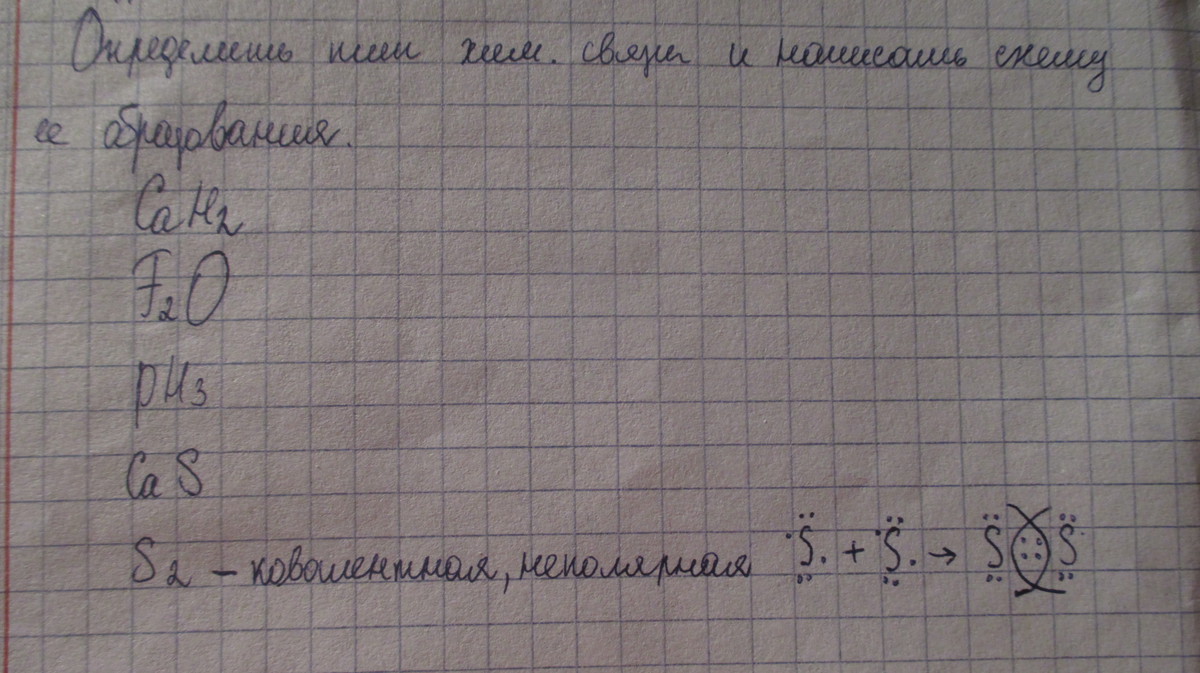 Определить тип хим. связи и написать схему
ее образования.
CaH₂
F₂O
PH₃
CaS
S₂ – ковалентная, неполярная ·S̈· + ·S̈· → S̈ :: S̈